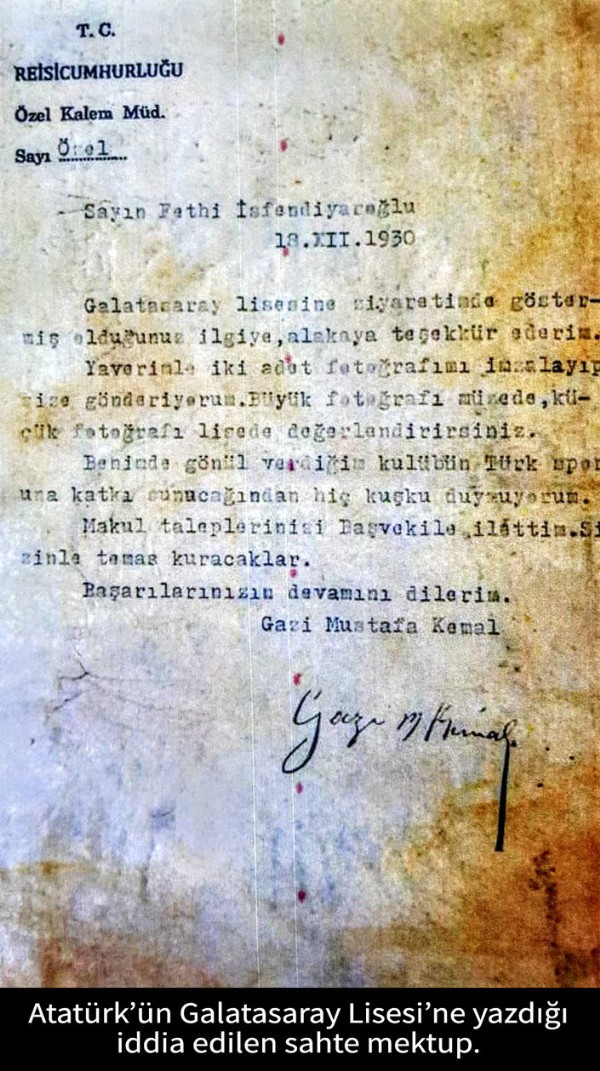 T. C.
REİSİCUMHURLUĞU
Özel Kalem Müd.
Sayı Özel
Sayın Fethi İsfendiyaroğlu
18.XII.1930
Galatasaray lisesine ziyaretimde göster-
miş olduğunuz ilgiye,alakaya teşekkür ederim.
Yaverimle iki adet fotoğrafımı imzalayıp
size gönderiyorum.Büyük fotoğrafı müzede,kü-
çük fotoğrafı lisede değerlendirirsiniz.
Benimde gönül verdiğim kulübün Türk spor
una katkı sunucağından hiç kuşku duymuyorum.
Makul taleplerinizi Başvekile ilettim.Si
zinle temas kuracaklar.
Başarılarınızın devamını dilerim.
Gazi Mustafa Kemal
Gazi M Kemal
Atatürk’ün Galatasaray Lisesi’ne yazdığı
iddia edilen sahte mektup.